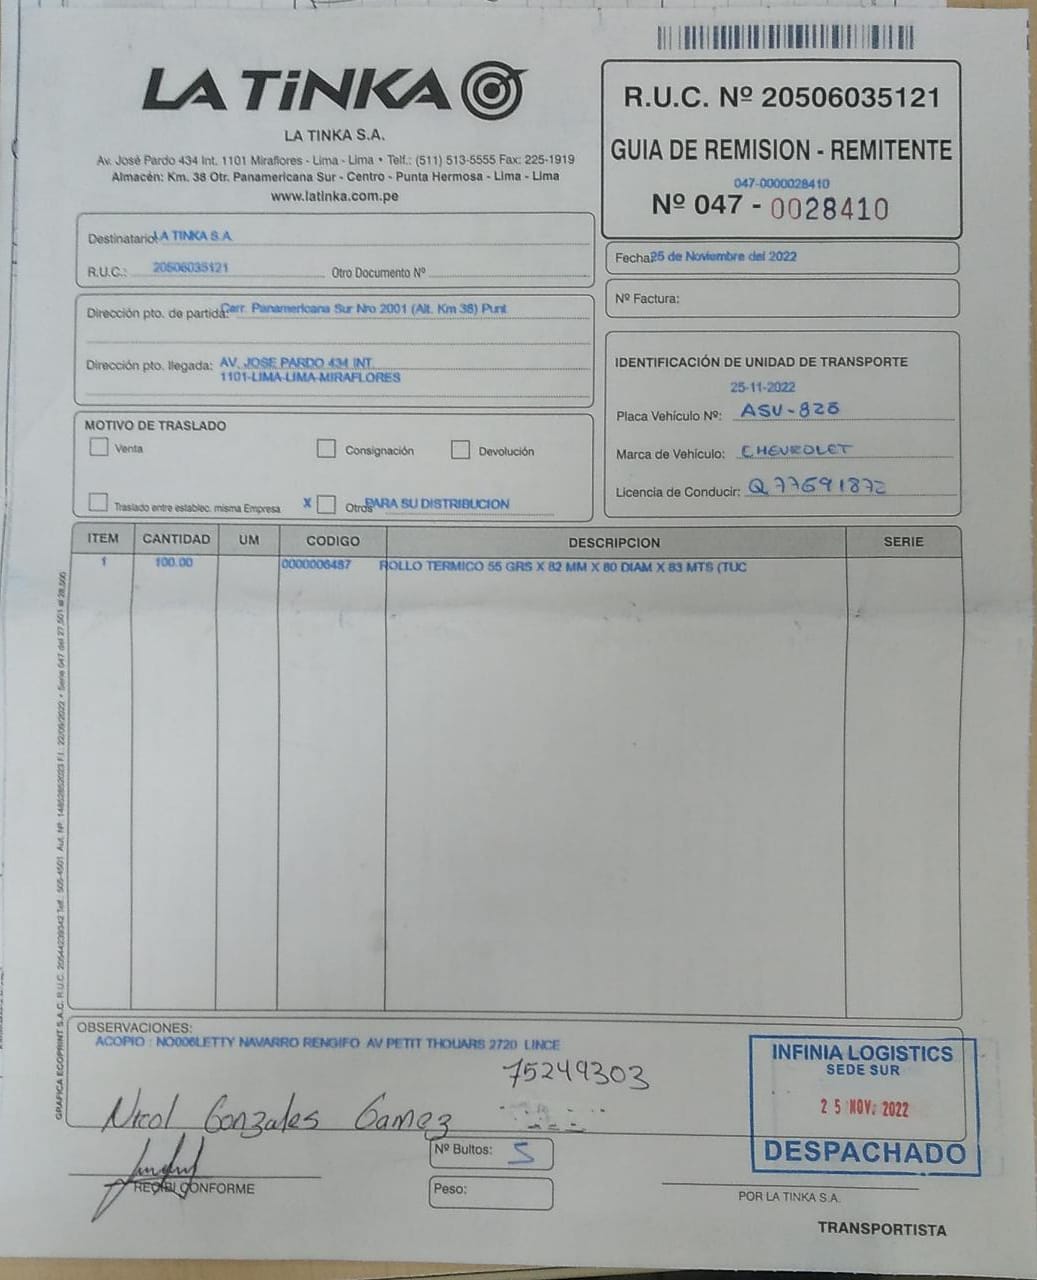 LA TiNKA
LA TINKA S.A.
Av. José Pardo 434 Int. 1101 Miraflores - Lima - Lima • Telf.: (511) 513-5555 Fax: 225-1919
Almacén: Km. 38 Otr. Panamericana Sur - Centro - Punta Hermosa - Lima - Lima
www.latinka.com.pe
R.U.C. Nº 20506035121
GUIA DE REMISION - REMITENTE
047-0000028410
Nº 047 - 0028410
Destinatario: LA TINKA S.A.
R.U.C.: 20506035121 Otro Documento Nº
Fecha: 25 de Noviembre del 2022
Nº Factura:
Dirección pto. de partida: Carr. Panamericana Sur Nro 2001 (Alt. Km 38) Punt
Dirección pto. llegada: AV. JOSE PARDO 434 INT.
1101-LIMA-LIMA-MIRAFLORES
IDENTIFICACIÓN DE UNIDAD DE TRANSPORTE
25-11-2022
Placa Vehículo Nº: ASU-828
Marca de Vehículo: CHEVROLET
Licencia de Conducir: Q77691872
MOTIVO DE TRASLADO
Venta Consignación Devolución
Traslado entre establec. misma Empresa X Otros PARA SU DISTRIBUCION
ITEM CANTIDAD UM CODIGO DESCRIPCION SERIE
1 100.00 0000006487 ROLLO TERMICO 55 GRS X 82 MM X 80 DIAM X 83 MTS (TUC
GRAFICA ECOPRINT S.A.C. R.U.C. 20544239342 Telf.: 505-4501 Aut. Nº: 14852852023 F.I.: 22/09/2022 • Serie 047 del 27,501 al 28,500
OBSERVACIONES:
ACOPIO : NO006LETTY NAVARRO RENGIFO AV PETIT THOUARS 2720 LINCE
75249303
Nicol Gonzales Gamez
RECIBI CONFORME
Nº Bultos: 5
Peso:
INFINIA LOGISTICS
SEDE SUR
25 NOV. 2022
DESPACHADO
POR LA TINKA S.A.
TRANSPORTISTA